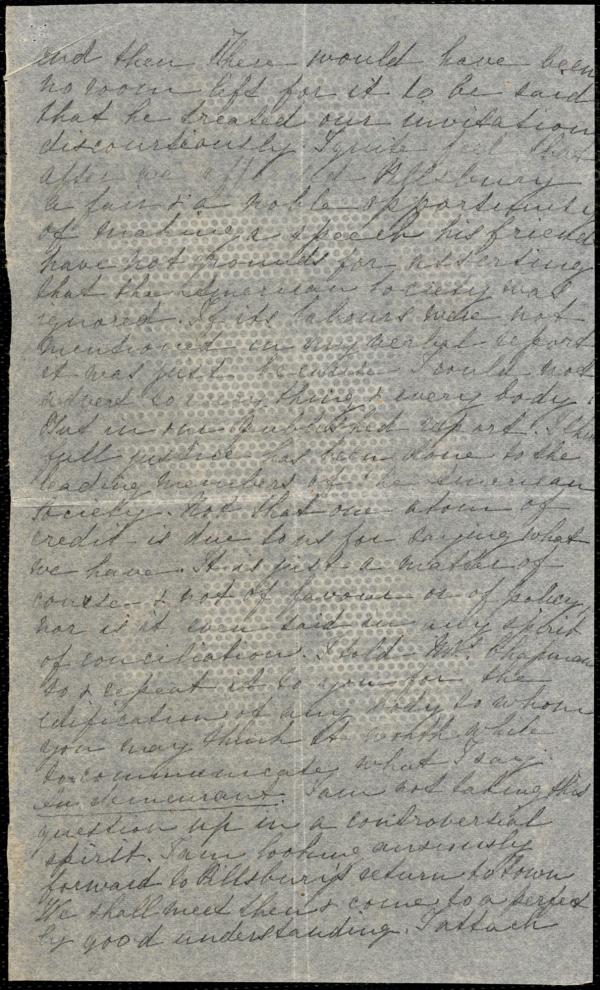 and then there would have been
no room left for it to be said
that he treated our invitation
discourteously. I quite feel that
after we Pillsbury
a fair & a noble opportunity
of making a speech his friends
have not grounds for asserting
that the American Society was
ignored. If its labours were not
mentioned in my verbal report
it was just because I could not
advert to every thing & every body
But in our published report. I think
full justice has been done to the
leading members of the American
Society. Not that one atom of
credit is due to us for saying what
we have. It is just a matter of
course & not of favour or of policy
nor is it even said in any spirit
of conciliation. I told Mrs. Chapman
so & repeat it to you for the
edification of any body to whom
you may think it worth while
to communicate what I say.
En demeurant. I am not taking this
question up in a controversial
spirit. I am looking anxiously
forward to Pillsbury's return to town
We shall meet then & come to a perfect
ly good understanding. I attach